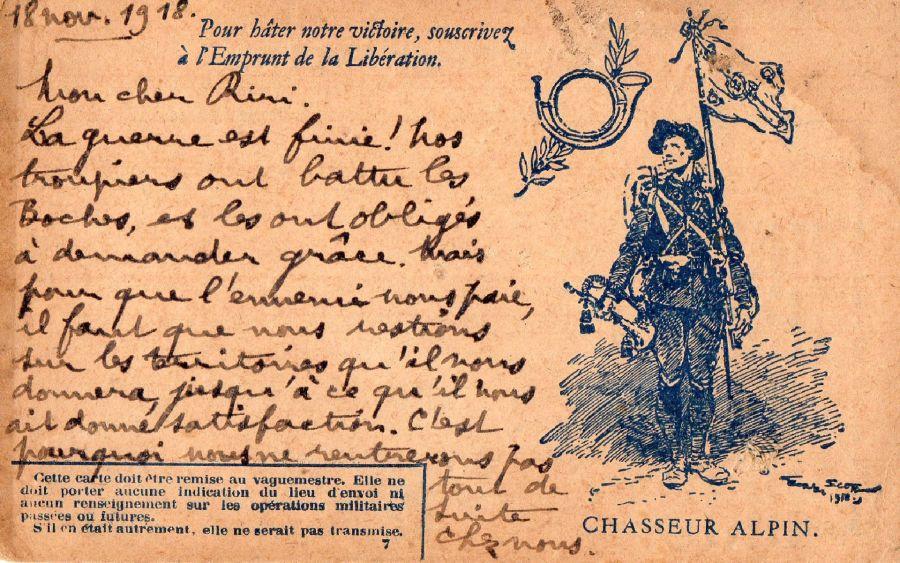 18 nov. 1918.
Pour hâter notre victoire, souscrivez
à l'Emprunt de la Libération.
Mon cher Riri.
La guerre est finie! Nos
troupiers ont battu les
Boches, et les ont obligés
à demander grâce. Mais
pour que l'ennemi nous paie,
il faut que nous restions
sur les territoires qu'il nous
donnera, jusqu'à ce qu'il nous
ait donné satisfaction. C'est
pourquoi nous ne rentrerons pas
tout de
suite
chez nous.
Cette carte doit être remise au vaguemestre. Elle ne
doit porter aucune indication du lieu d'envoi ni
aucun renseignement sur les opérations militaires
passées ou futures.
S'il en était autrement, elle ne serait pas transmise.
7
1918
CHASSEUR ALPIN.